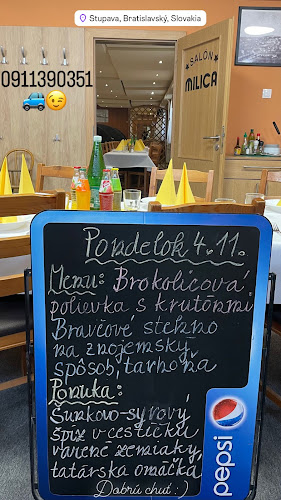 Stupava, Bratislavský, Slovakia
0911390351
SALÓN
MILICA
Pondelok 4.11.
Menu: Brokolicová
polievka s krutónmi
Bravčové stehno
na znojemský
spôsob, tarhoňa
Ponuka:
Šunkovo-syrový
špíz v cestíčku
varené zemiaky,
tatárska omáčka,
Dobrú chuť :)
pepsi